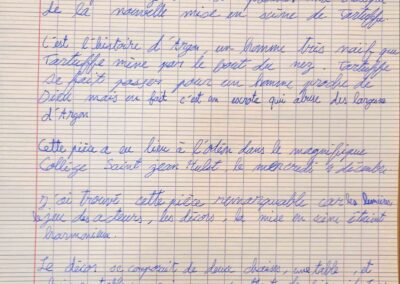 de la nouvelle mise en scène de Tartuffe.
C'est l'histoire d'Argon, un homme très naïf que
Tartuffe mène par le bout du nez. Tartuffe
se fait passer pour un homme proche de
Dieu mais en fait c'est un escroc qui abuse des largesses
d'Argon
Cette pièce a eu lieu à l'Odéon dans le magnifique
Collège Saint Jean Hulst, le mercredi 4 décembre
J'ai trouvé cette pièce remarquable car les lumières
le jeu des acteurs, les décors, la mise en scène étaient
harmonieux.
Le décor se composait de deux chaises, une table, et